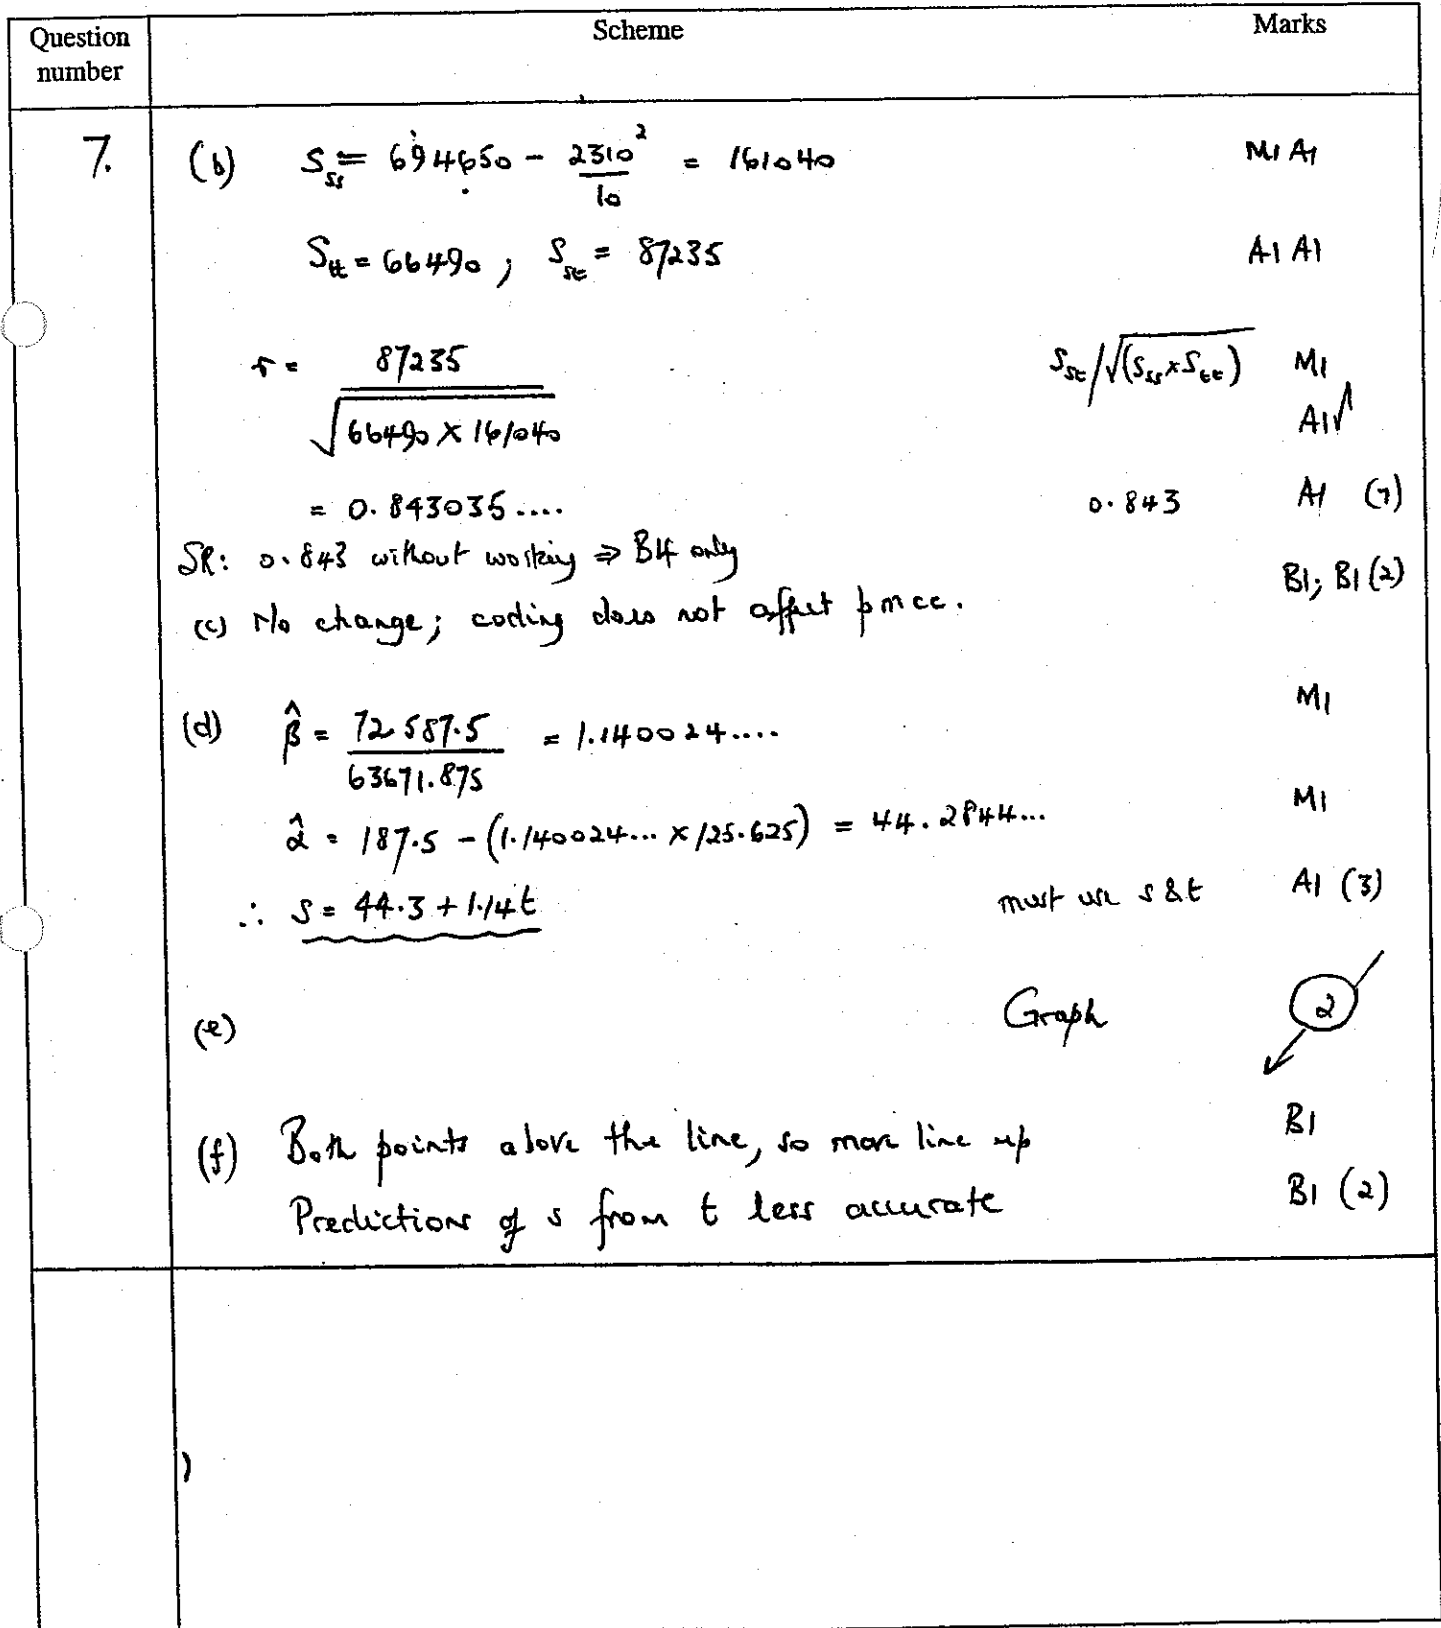 Question number Scheme Marks
7. (b) S_ss = 694650 - 2310²/10 = 161040 M1 A1
S_tt = 66490 ; S_st = 87235 A1 A1
r = 87235 / √(66490 × 161040) S_st/√(S_ss × S_tt) M1
A1√
= 0.843035.... 0.843 A1 (7)
SR: 0.843 without working ⇒ B4 only
(c) No change; coding does not affect pmcc. B1; B1 (2)
(d) β̂ = 72587.5 / 63671.875 = 1.140024.... M1
α̂ = 187.5 - (1.140024... × 125.625) = 44.2844... M1
∴ s = 44.3 + 1.14t must use s & t A1 (3)
(e) Graph 2
(f) Both points above the line, so move line up B1
Predictions of s from t less accurate B1 (2)
)